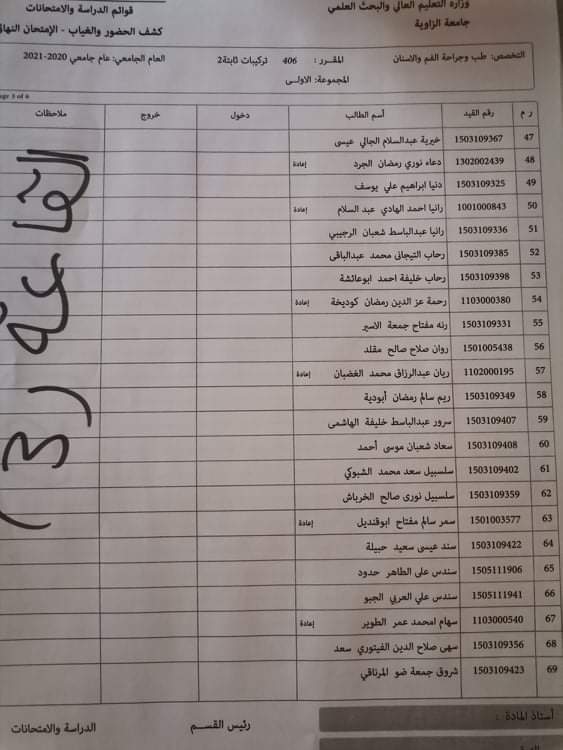 وزارة التعليم العالي والبحث العلمي
جامعة الزاوية
قوائم الدراسة والامتحانات
كشف الحضور والغياب - الإمتحان النهائي
التخصص: طب وجراحة الفم والاسنان
المقرر : 406 تركيبات ثابتة2
العام الجامعي: عام جامعي 2020-2021
المجموعة: الاولى
Page 3 of 6
ر م رقم القيد أسم الطالب دخول خروج ملاحظات
47 1503109367 خيرية عبدالسلام الجالي عيسى
48 1302002439 دعاء نوري رمضان الجرد إعادة
49 1503109325 دنيا ابراهيم علي يوسف
50 1001000843 رانيا احمد الهادي عبد السلام إعادة
51 1503109336 رانيا عبدالباسط شعبان الرجيبي
52 1503109385 رحاب التيجانى محمد عبدالباقى
53 1503109398 رحاب خليفة احمد ابوعائشة
54 1103000380 رحمة عز الدين رمضان كوديخة إعادة
55 1503109331 رنه مفتاح جمعة الاسير
56 1501005438 روان صلاح صالح مقلد
57 1102000195 ريان عبدالرزاق محمد الغضبان إعادة
58 1503109349 ريم سالم رمضان أبودية
59 1503109407 سرور عبدالباسط خليفة الهاشمى
60 1503109408 سعاد شعبان موسى أحمد
61 1503109402 سلسبيل سعد محمد الشبوكي
62 1503109359 سلسبيل نورى صالح الخرباش
63 1501003577 سمر سالم مفتاح ابوقنديل إعادة
64 1503109422 سند عيسى سعيد حبيلة
65 1505111906 سندس على الطاهر حدود
66 1505111941 سندس علي العربي الجبو
67 1103000540 سهام امحمد عمر الطوير إعادة
68 1503109356 سهى صلاح الدين الفيتوري سعد
69 1503109423 شروق جمعة ضو المرناقي
القاعة (3)
أستاذ المادة :
رئيس القسـم
الدراسة والامتحانات